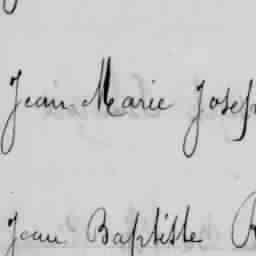 Jean Marie Josep
Jean Baptiste